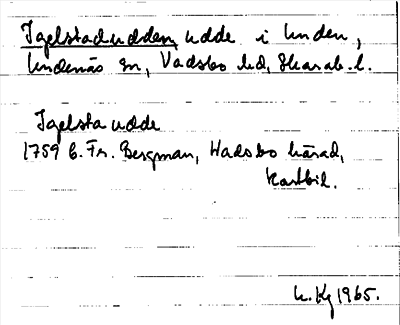 Igelstadudden, udde i Unden,
Undenäs sn, Vadsbo hd, Skarab. l.
Igelsta udde
1759 C. Fr. Bergman, Wadsbo härad,
Kartbil.
1965.